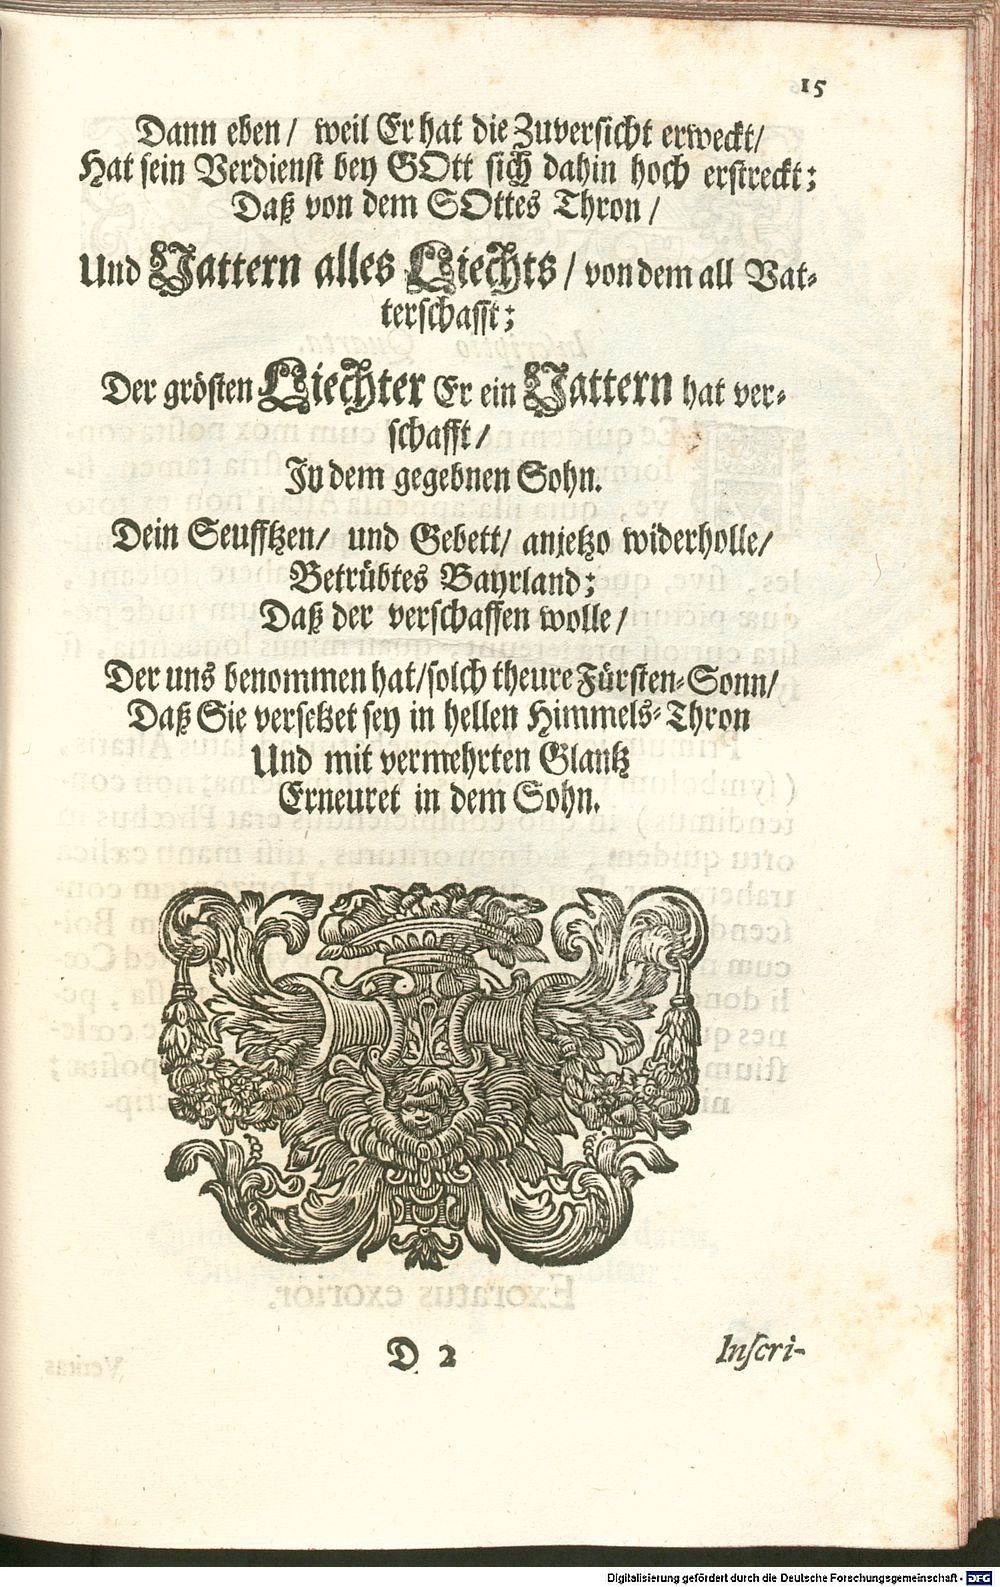 15
Dann eben/ weil Er hat die Zuversicht erweckt/
Hat sein Verdienst bey GOtt sich dahin hoch erstreckt;
Daß von dem GOttes Thron/
Und Vattern alles Liechts/ von dem all Vat-
terschafft;
Der grösten Liechter Er ein Vattern hat ver-
schafft/
In dem gegebnen Sohn.
Dein Seufftzen/ und Gebett/ anjetzo widerholle/
Betrübtes Bayrland;
Daß der verschaffen wolle/
Der uns benommen hat/solch theure Fürsten-Sonn/
Daß Sie versetzet sey in hellen Himmels-Thron
Und mit vermehrten Glantz
Erneuret in dem Sohn.
D 2
Inscri-
Digitalisierung gefördert durch die Deutsche Forschungsgemeinschaft - DFG